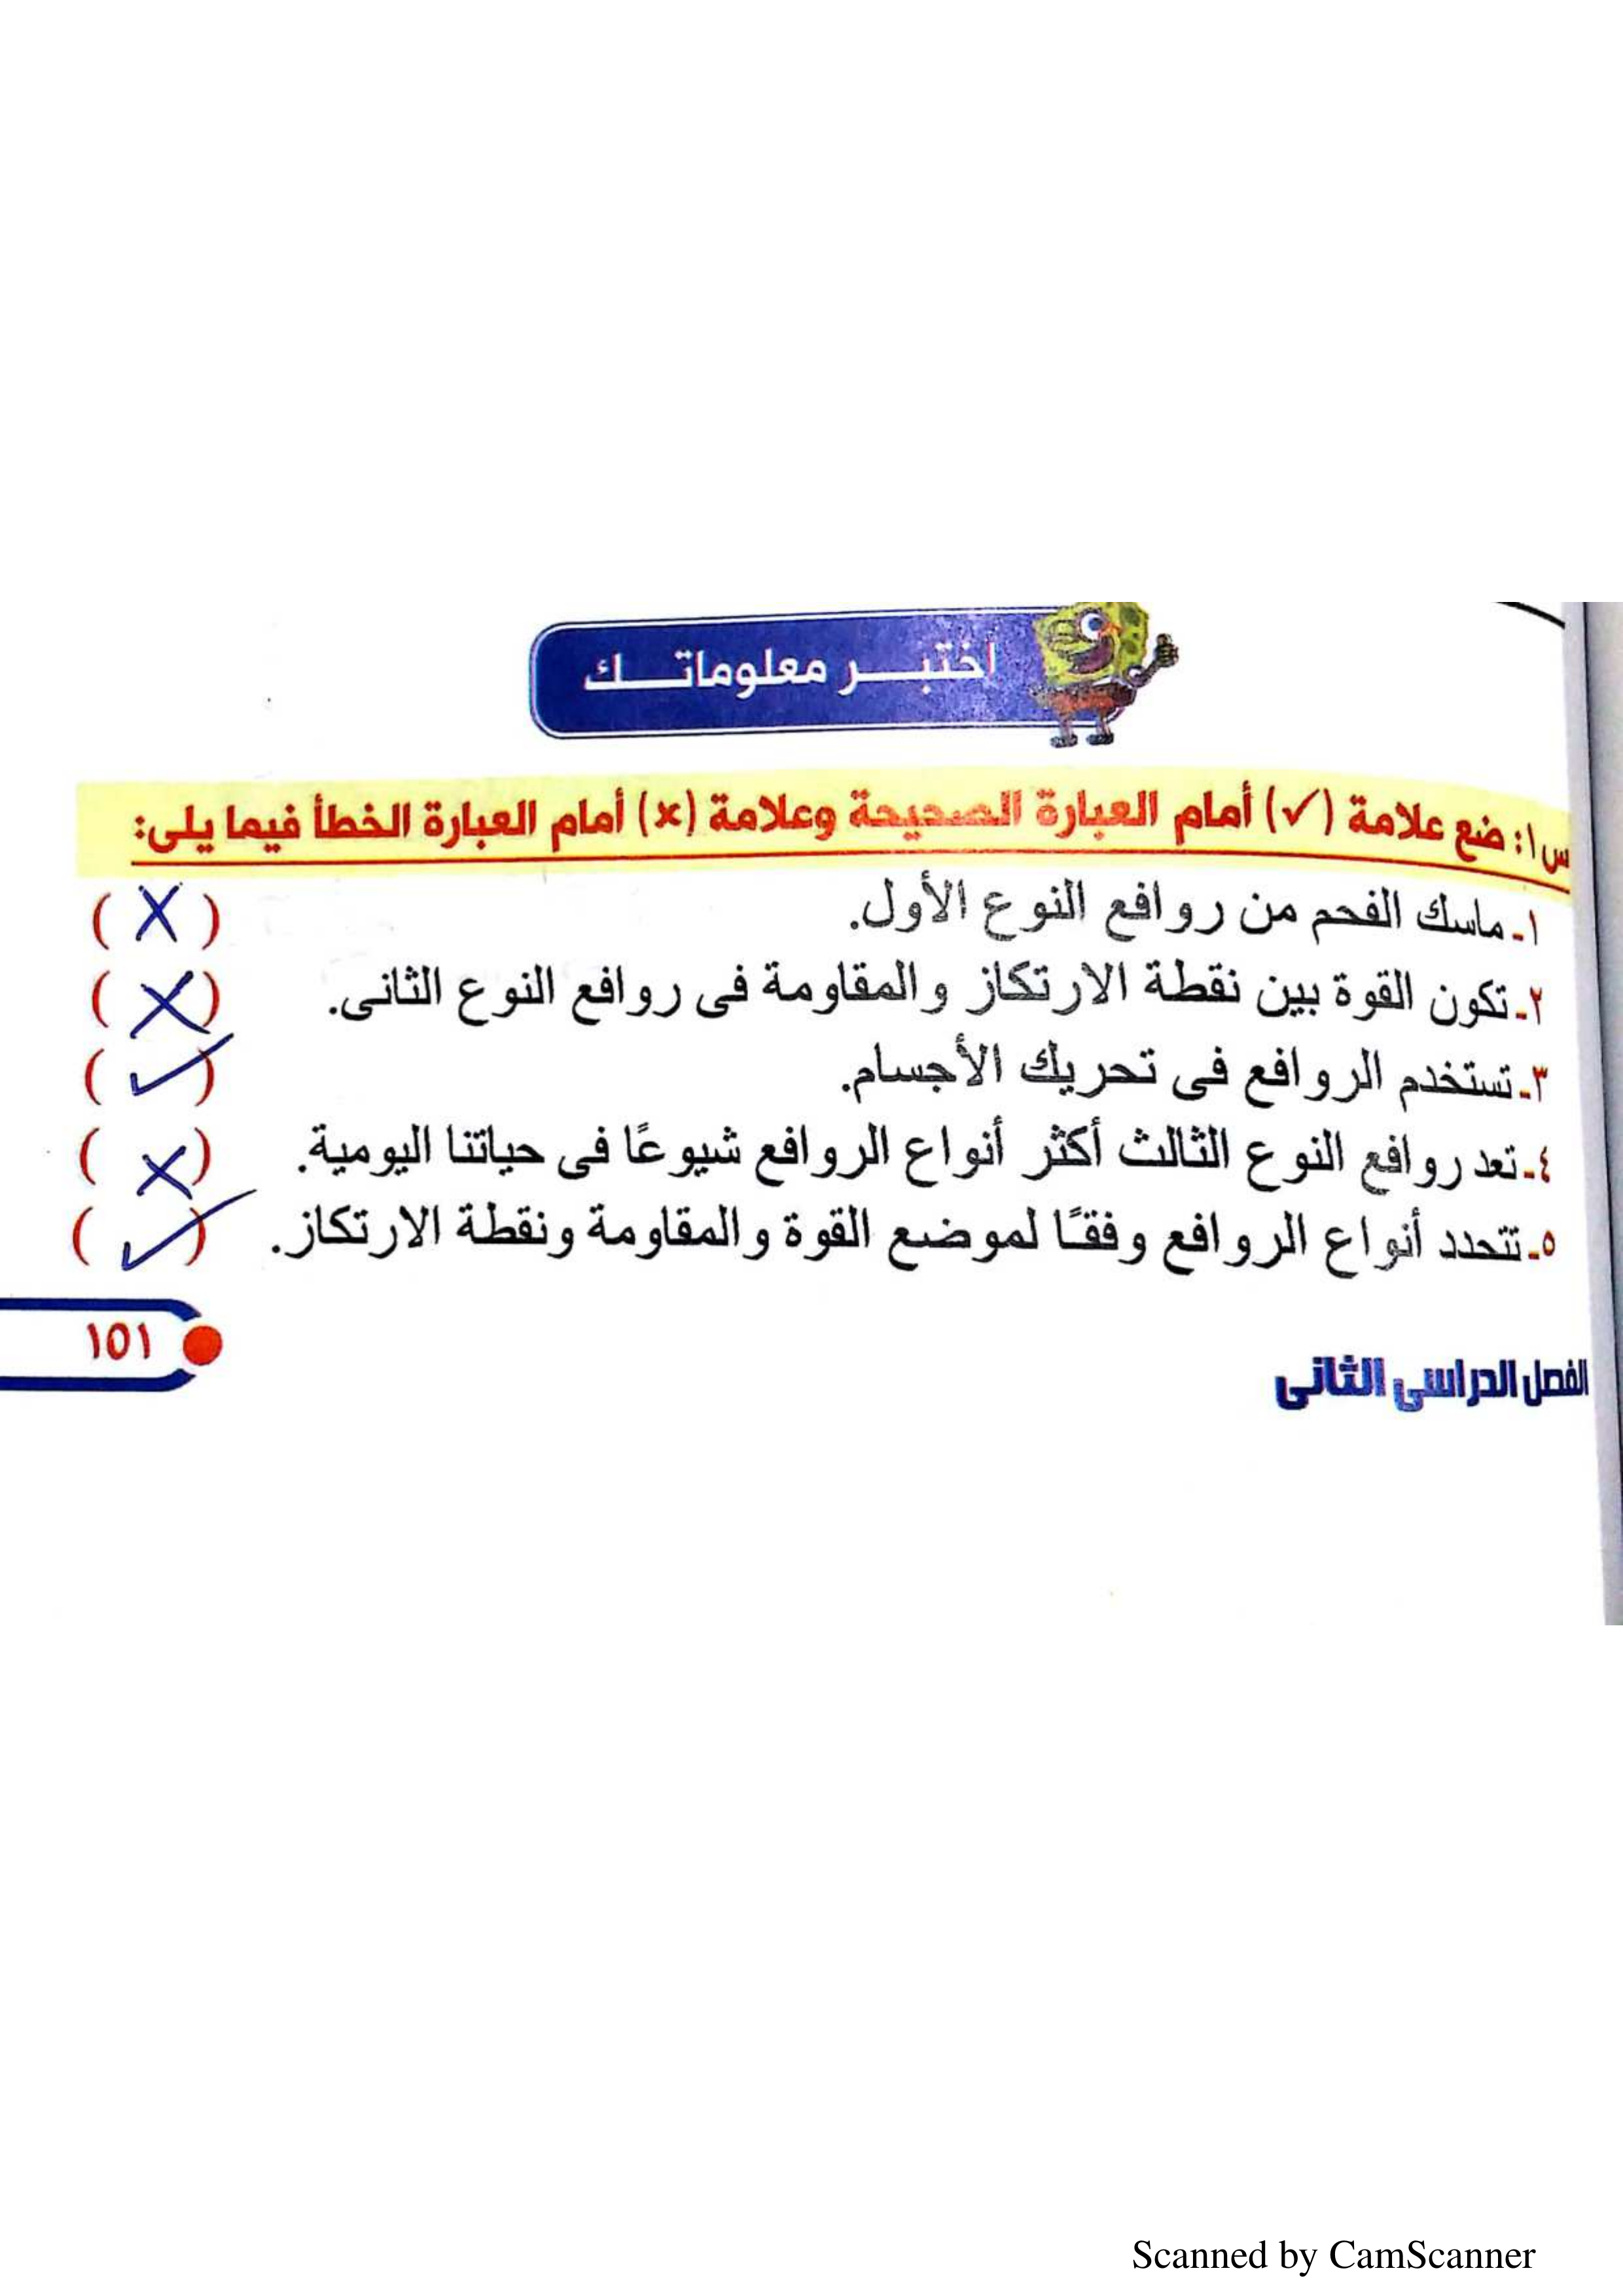 اختبر معلوماتك
س١: ضع علامة (✓) أمام العبارة الصحيحة وعلامة (×) أمام العبارة الخطأ فيما يلى:
١- ماسك الفحم من روافع النوع الأول. (X)
٢- تكون القوة بين نقطة الارتكاز والمقاومة فى روافع النوع الثانى. (X)
٣- تستخدم الروافع فى تحريك الأجسام. (✓)
٤- تعد روافع النوع الثالث أكثر أنواع الروافع شيوعًا فى حياتنا اليومية. (X)
٥- تتحدد أنواع الروافع وفقًا لموضع القوة والمقاومة ونقطة الارتكاز. (✓)
الفصل الدراسى الثانى
١٥١
Scanned by CamScanner